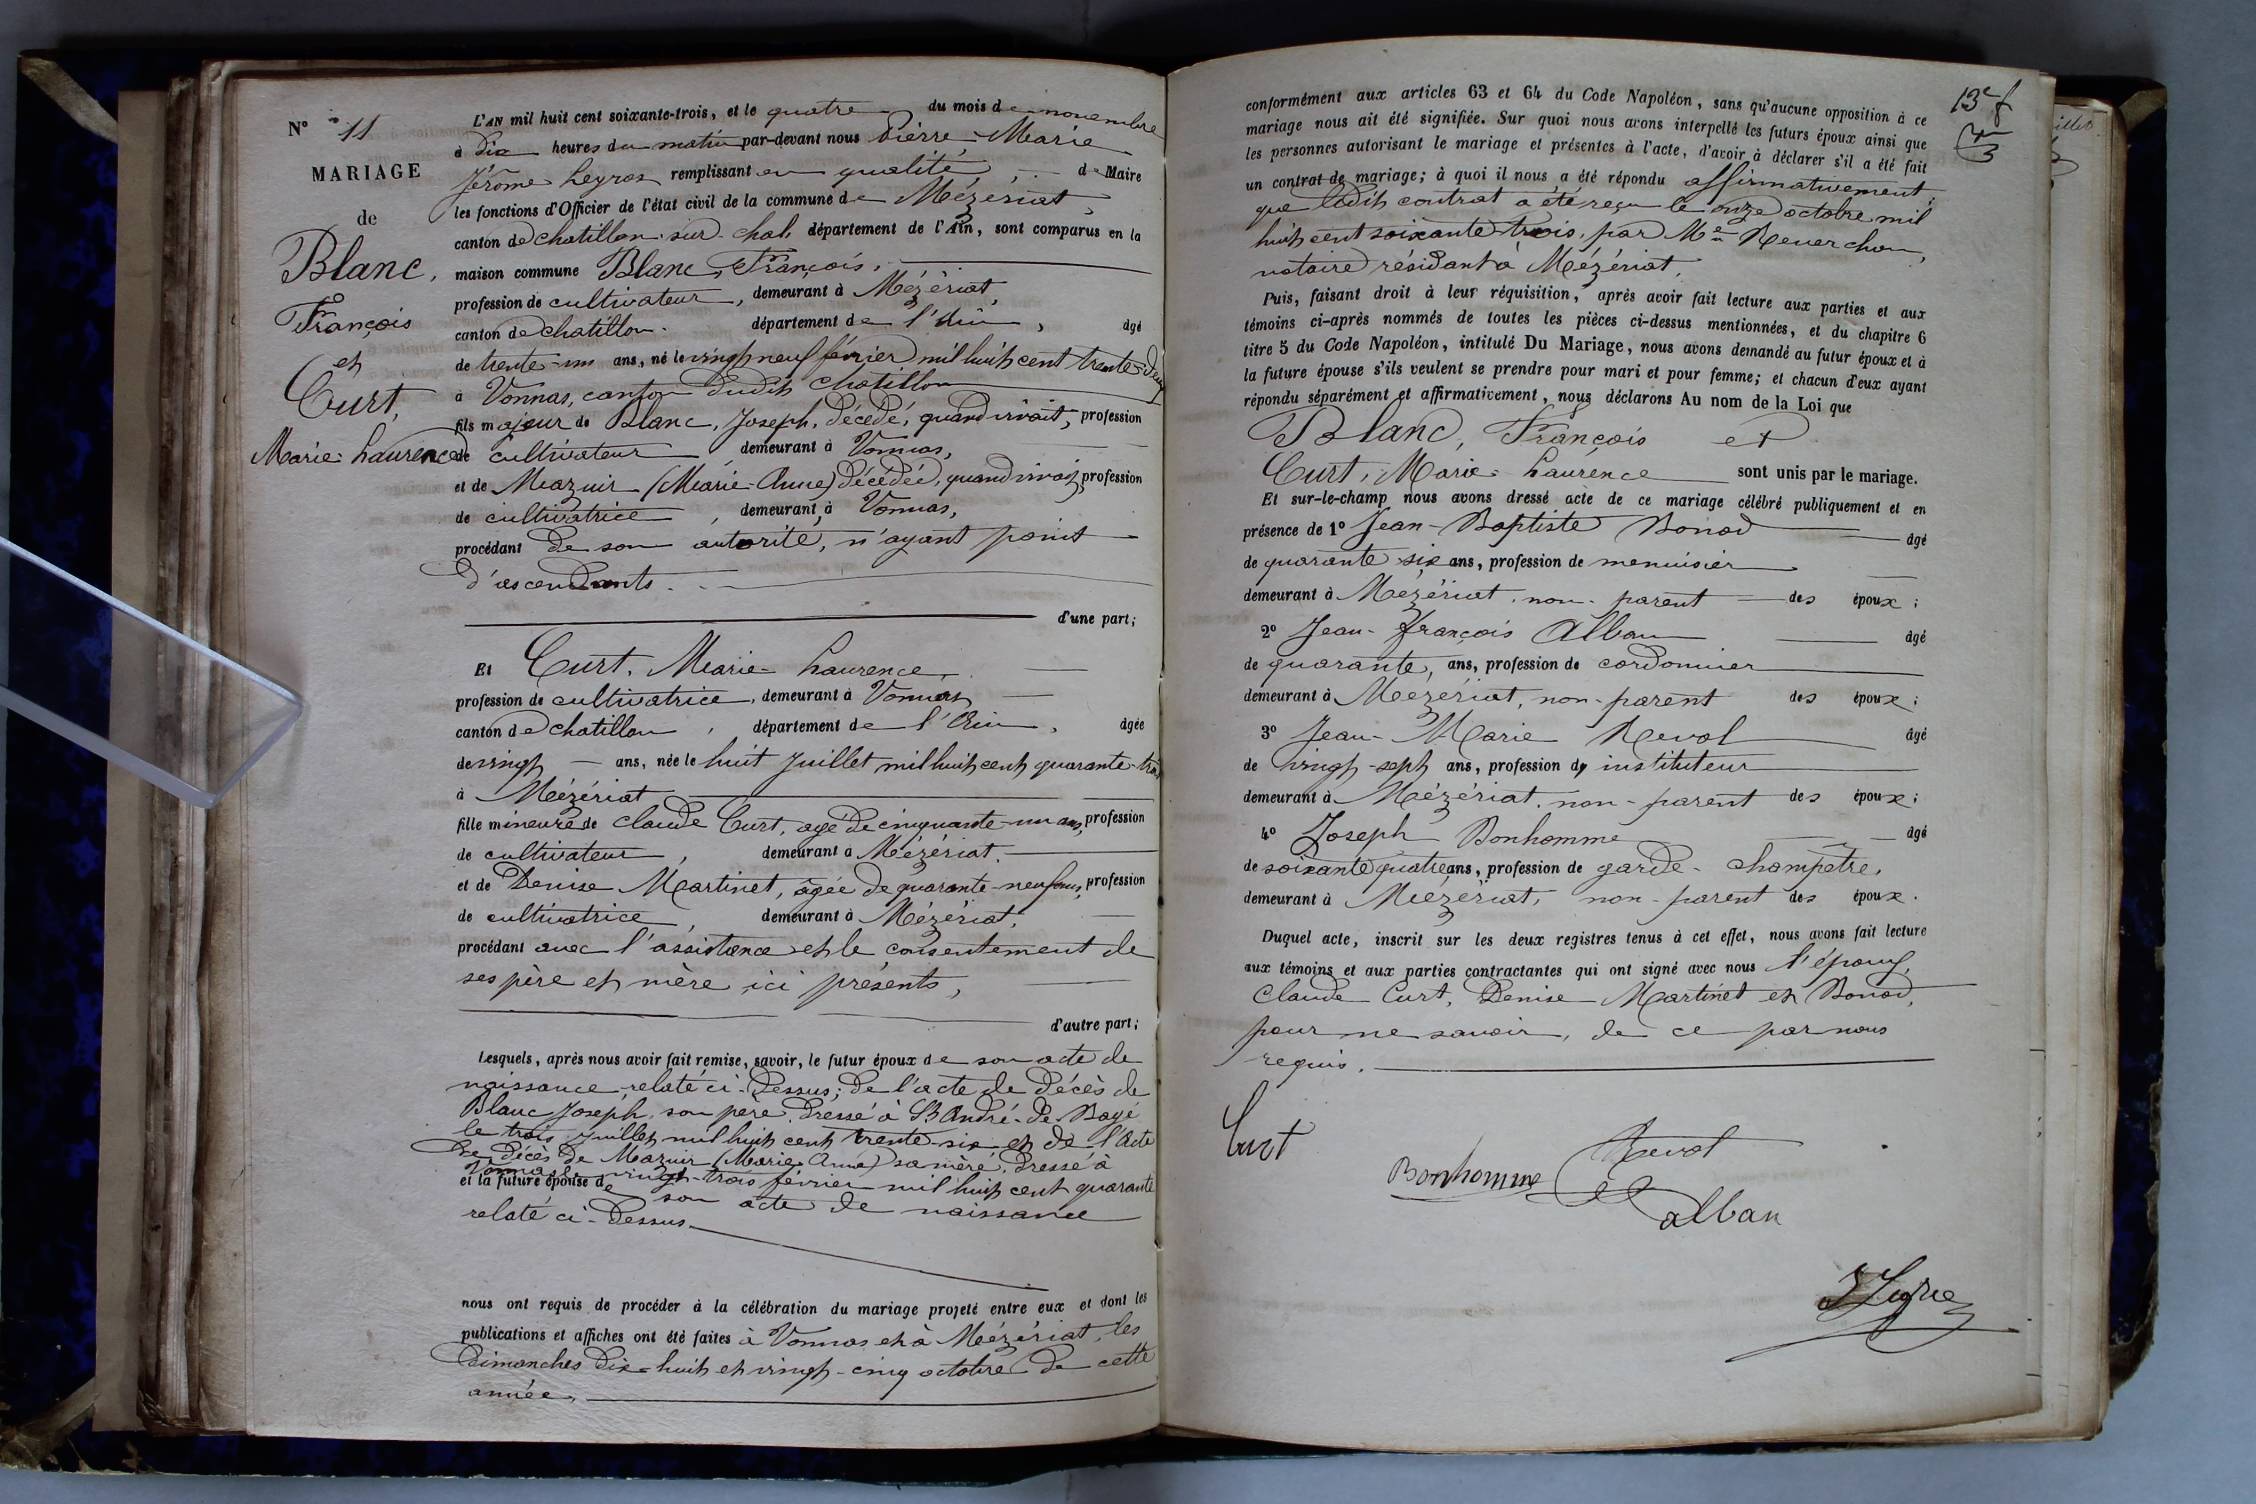 N° 11
MARIAGE
de
Blanc,
François
et
Curt,
Marie-Laurence
L'AN mil huit cent soixante-trois, et le quatre du mois de novembre
à dix heures du matin par-devant nous Pierre-Marie
Jérôme remplissant en qualité de Maire
les fonctions d'Officier de l'état civil de la commune de Mézériat,
canton de chatillon-sur-chal. département de l'Ain, sont comparus en la
maison commune Blanc, François,
profession de cultivateur, demeurant à Mézériat,
canton de chatillon. département de l'Ain, âgé
de trente-un ans, né le vingt neuf février mil huit cent trente-deux
à Vonnas, canton dudit chatillon
fils majeur de Blanc, Joseph, décédé, quand vivait, profession
de cultivateur, demeurant à Vonnas,
et de Mazuir (Marie-Anne) décédée, quand vivait, profession
de cultivatrice, demeurant à Vonnas,
procédant de son autorité, n'ayant point
d'ascendants.
d'une part;
Et Curt, Marie-Laurence,
profession de cultivatrice, demeurant à Vonnas
canton de chatillon, département de l'Ain, âgée
de vingt ans, née le huit Juillet mil huit cent quarante-trois
à Mézériat
fille mineure de Claude Curt, agé de cinquante-un ans, profession
de cultivateur, demeurant à Mézériat.
et de Denise Martinet, âgée de quarante-neuf ans, profession
de cultivatrice, demeurant à Mézériat,
procédant avec l'assistance et le consentement de
ses père et mère ici présents,
d'autre part;
Lesquels, après nous avoir fait remise, savoir, le futur époux de son acte de
naissance, relaté ci-dessus; de l'acte de décès de
Blanc Joseph, son père dressé à St André-de-Bagé
le trois juillet mil huit cent trente-six et de l'acte
de décès de Mazuir (Marie Anne) sa mère, dressé à
Vonnas le vingt-trois février mil huit cent quarante
et la future épouse de son acte de naissance
relaté ci-dessus
nous ont requis de procéder à la célébration du mariage projeté entre eux et dont les
publications et affiches ont été faites à Vonnas et à Mézériat, les
dimanches dix-huit et vingt-cinq octobre de cette
année,
13e f
conformément aux articles 63 et 64 du Code Napoléon, sans qu'aucune opposition à ce
mariage nous ait été signifiée. Sur quoi nous avons interpellé les futurs époux ainsi que
les personnes autorisant le mariage et présentes à l'acte, d'avoir à déclarer s'il a été fait
un contrat de mariage; à quoi il nous a été répondu affirmativement;
que ledit contrat a été reçu le onze octobre mil
huit cent soixante trois, par Me Reverchon,
notaire résidant à Mézériat.
Puis, faisant droit à leur réquisition, après avoir fait lecture aux parties et aux
témoins ci-après nommés de toutes les pièces ci-dessus mentionnées, et du chapitre 6
titre 5 du Code Napoléon, intitulé Du Mariage, nous avons demandé au futur époux et à
la future épouse s'ils veulent se prendre pour mari et pour femme; et chacun d'eux ayant
répondu séparément et affirmativement, nous déclarons Au nom de la Loi que
Blanc, François et
Curt, Marie-Laurence sont unis par le mariage.
Et sur-le-champ nous avons dressé acte de ce mariage célébré publiquement et en
présence de 1° Jean-Baptiste Bonod âgé
de quarante six ans, profession de menuisier
demeurant à Mézériat, non-parent des époux;
2° Jean-François Alban âgé
de quarante, ans, profession de cordonnier
demeurant à Mézériat, non-parent des époux;
3° Jean-Marie Revol âgé
de vingt-sept ans, profession d' instituteur
demeurant à Mézériat, non-parent des époux;
4° Joseph Bonhomme âgé
de soixante quatre ans, profession de garde-champêtre,
demeurant à Mézériat, non-parent des époux.
Duquel acte, inscrit sur les deux registres tenus à cet effet, nous avons fait lecture
aux témoins et aux parties contractantes qui ont signé avec nous l'époux,
Claude Curt, Denise Martinet et Bonod,
pour ne savoir, de ce par nous
requis.
Curt
Revol
Bonhomme
alban